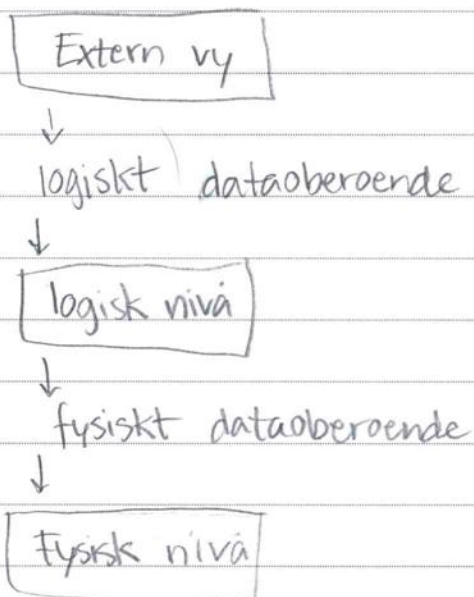 Extern vy
logiskt dataoberoende
logisk nivå
fysiskt dataoberoende
Fysisk nivå